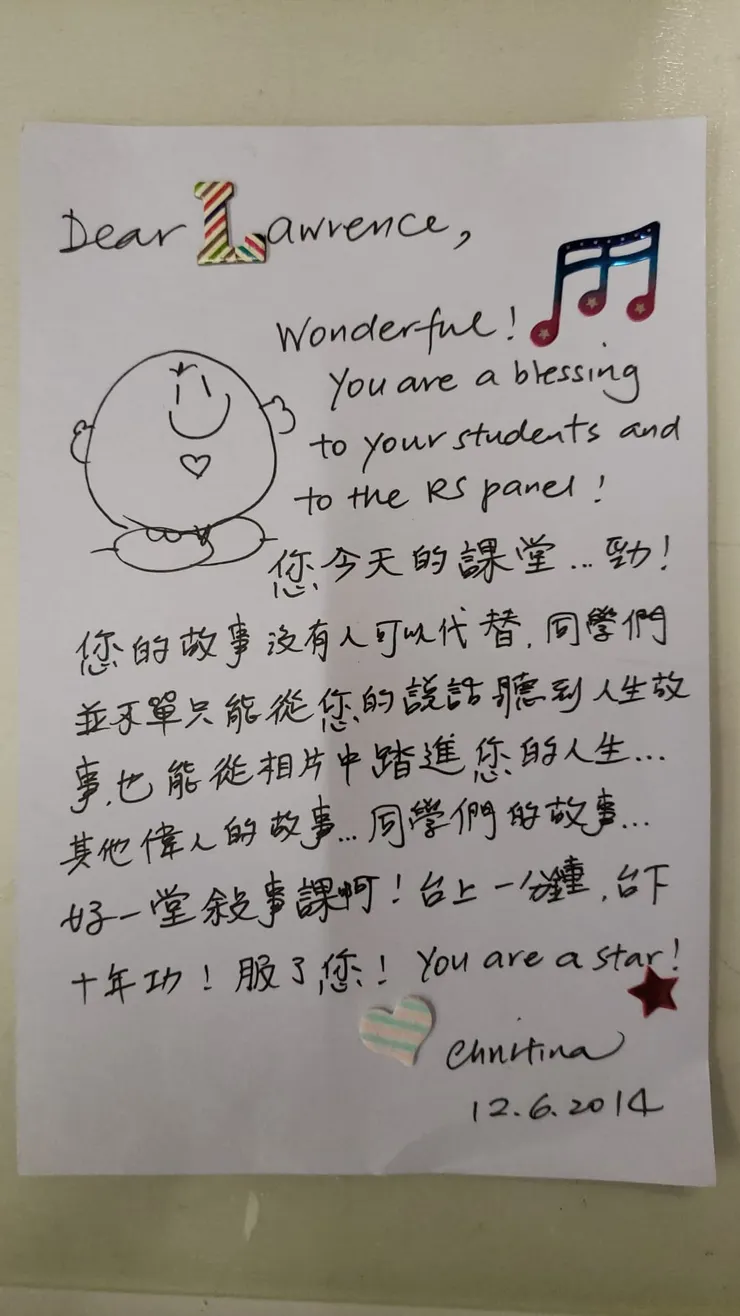 Dear Lawrence,
Wonderful!
You are a blessing
to your students and
to the RS panel!
您今天的課堂...勁!
您的故事沒有人可以代替,同學們
並不單只能從您的說話聽到人生故
事,也能從相片中踏進您的人生...
其他偉人的故事...同學們的故事...
好一堂敍事課啊!台上一分鐘,台下
十年功!服了您! You are a star!
Christina
12.6.2014